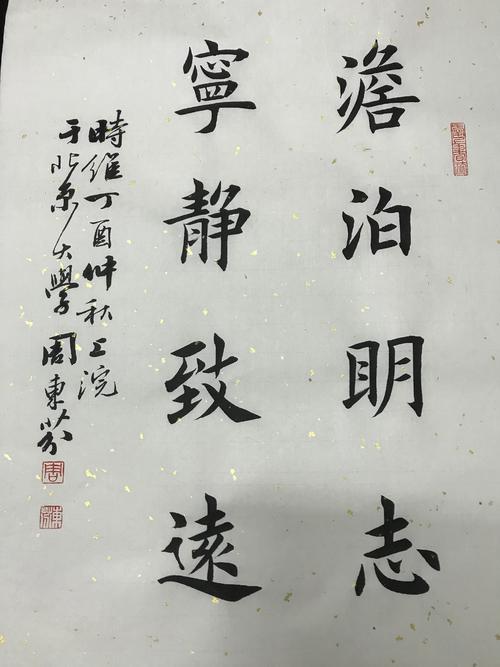 澹泊明志
寧静致遠
時維丁酉仲秋上浣
于北京大學周東芬